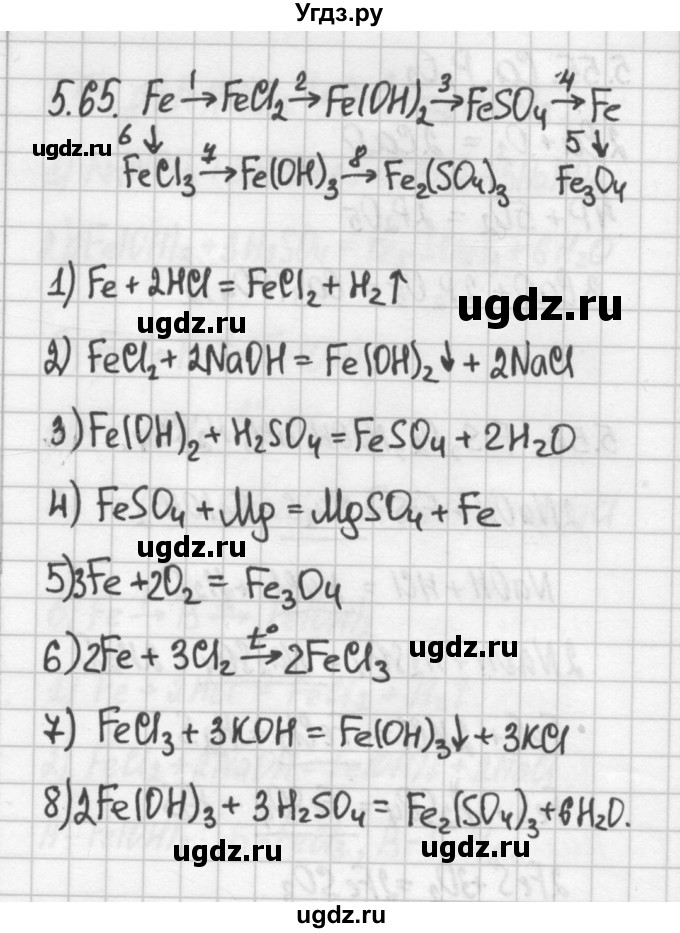 Угдз.ру
5.65. Fe →1 FeCl2 →2 Fe(OH)2 →3 FeSO4 →4 Fe
6 ↓ 5 ↓
ugdz.ru
FeCl3 →7 Fe(OH)3 →8 Fe2(SO4)3 Fe3O4
1) Fe + 2HCl = FeCl2 + H2↑
ugdz.ru
ugdz.ru
2) FeCl2 + 2NaOH = Fe(OH)2↓ + 2NaCl
3) Fe(OH)2 + H2SO4 = FeSO4 + 2H2O
4) FeSO4 + Mg = MgSO4 + Fe
ugdz.ru
5) 3Fe + 2O2 = Fe3O4
6) 2Fe + 3Cl2 →t° 2FeCl3
ugdz.ru
7) FeCl3 + 3KOH = Fe(OH)3↓ + 3KCl
8) 2Fe(OH)3 + 3H2SO4 = Fe2(SO4)3 + 6H2O.
ugdz.ru
ugdz.ru
ugdz.ru